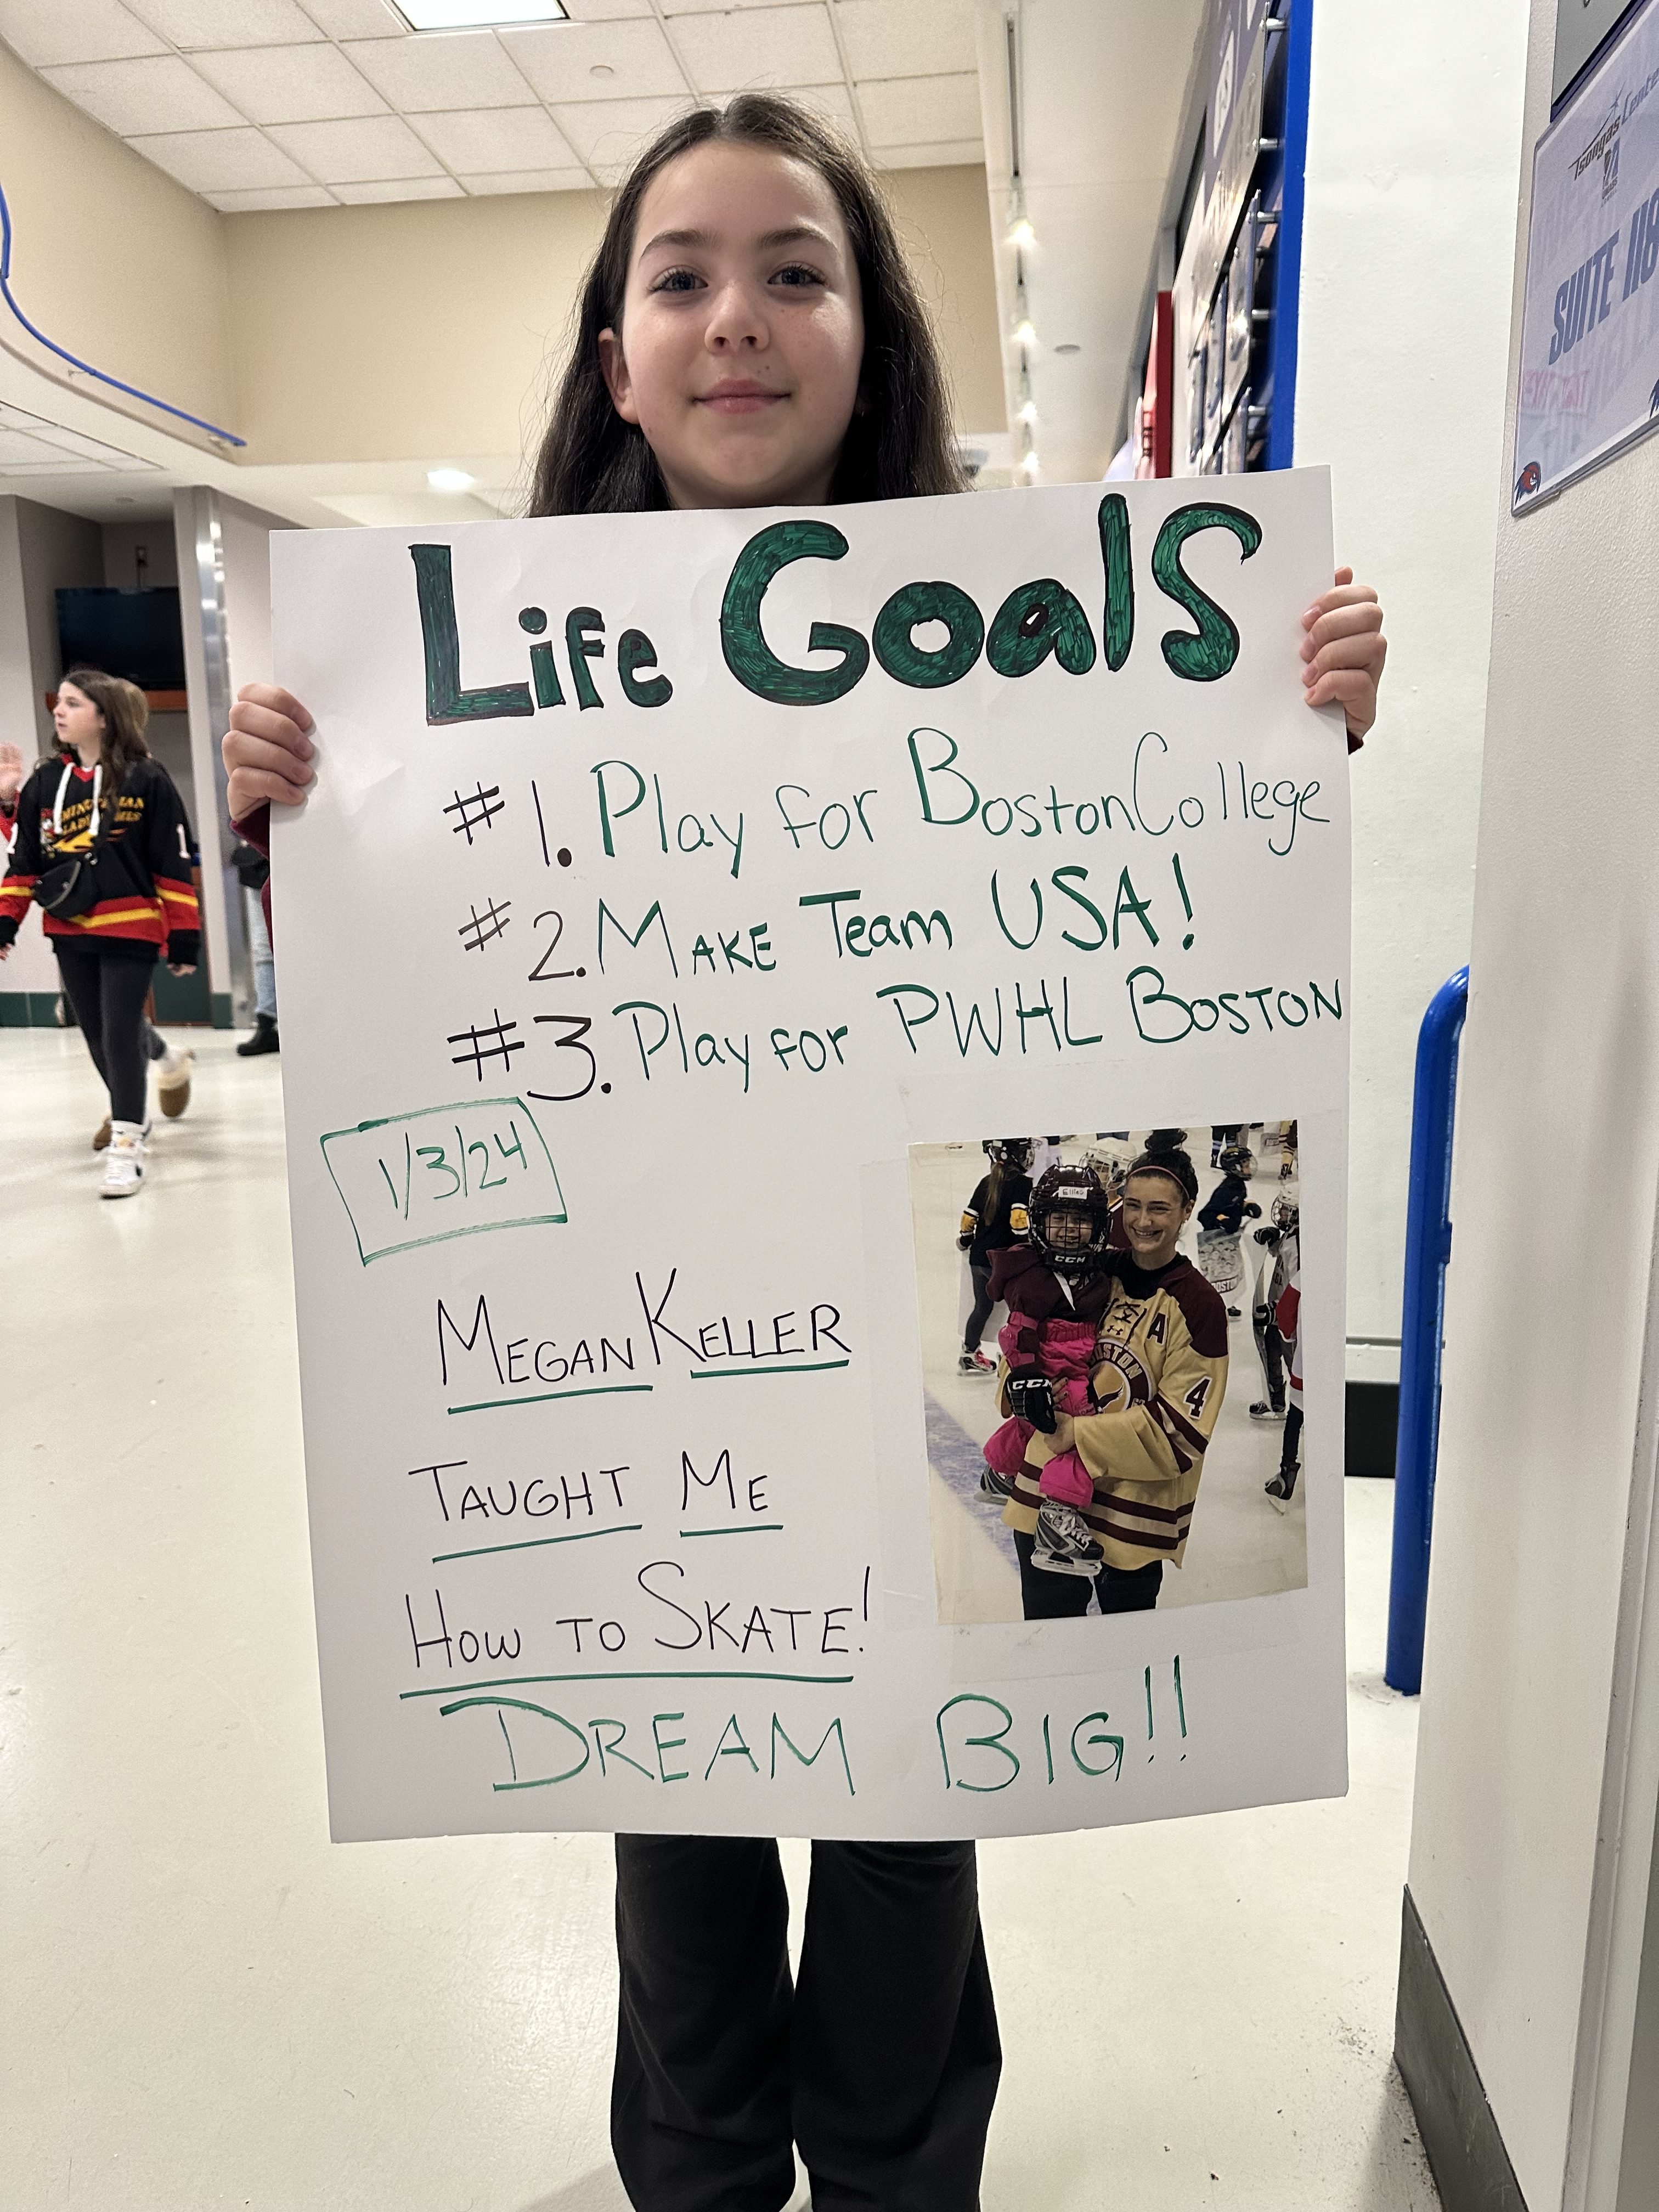 Tsongas Center
SUITE 118
Life Goals
#1. Play for Boston College
#2. Make Team USA!
#3. Play for PWHL Boston
1/3/24
Megan Keller
Taught Me
How to Skate!
Dream Big!!
CCM
A
4
CCM
1